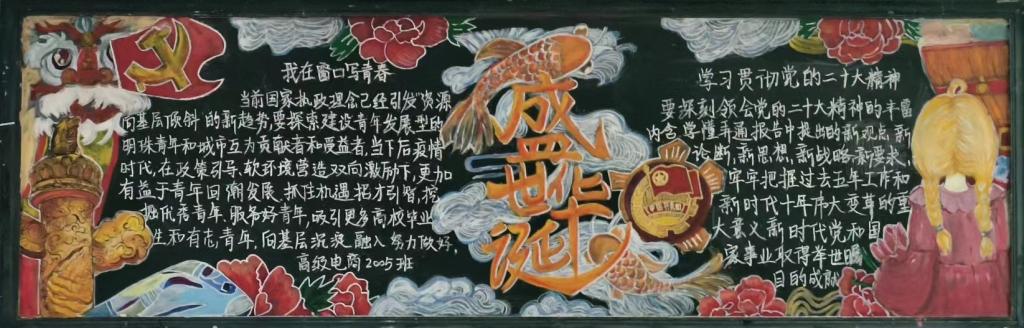 我在窗口写青春
当前国家执政理念已经引发资源
向基层倾斜的新趋势,要探索建设青年发展型的
明珠青年和城市互为贡献者和受益者,当下后疫情
时代,在政策引导,软环境营造双向激励下,更加
有益于青年回潮发展,抓住机遇,招才引智,挖
代表青年,服务好青年,吸引更多高校毕业
生和有志青年,向基层沉淀融入努力做好,
高级电商2005班
盛世华诞
学习贯彻党的二十大精神
要深刻领会党的二十大精神的丰富
内含,学懂弄通报告中提出的新观点,新
论断,新思想,新战略,新要求,
牢牢把握过去五年工作和
新时代十年伟大变革的重
大意义新时代党和国
家事业取得举世瞩
目的成就